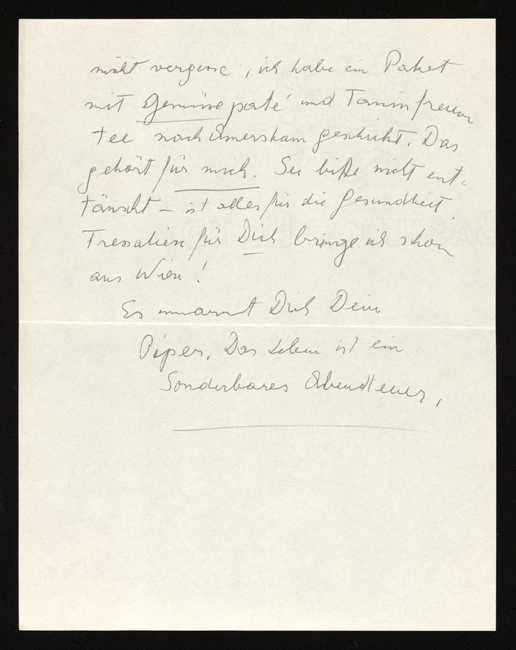 nicht vergesse, ich habe ein Paket
mit Gemüse paté und Taninfreien
tee nach Amersham geschickt. Das
gehört für mich. Sei bitte nicht ent-
täuscht – ist alles für die Gesundheit.
Fressalien für Dich bringe ich schon
aus Wien!
Es umarmt Dich Dein
Piper, Das Leben ist ein
Sonderbares Abendteuer,